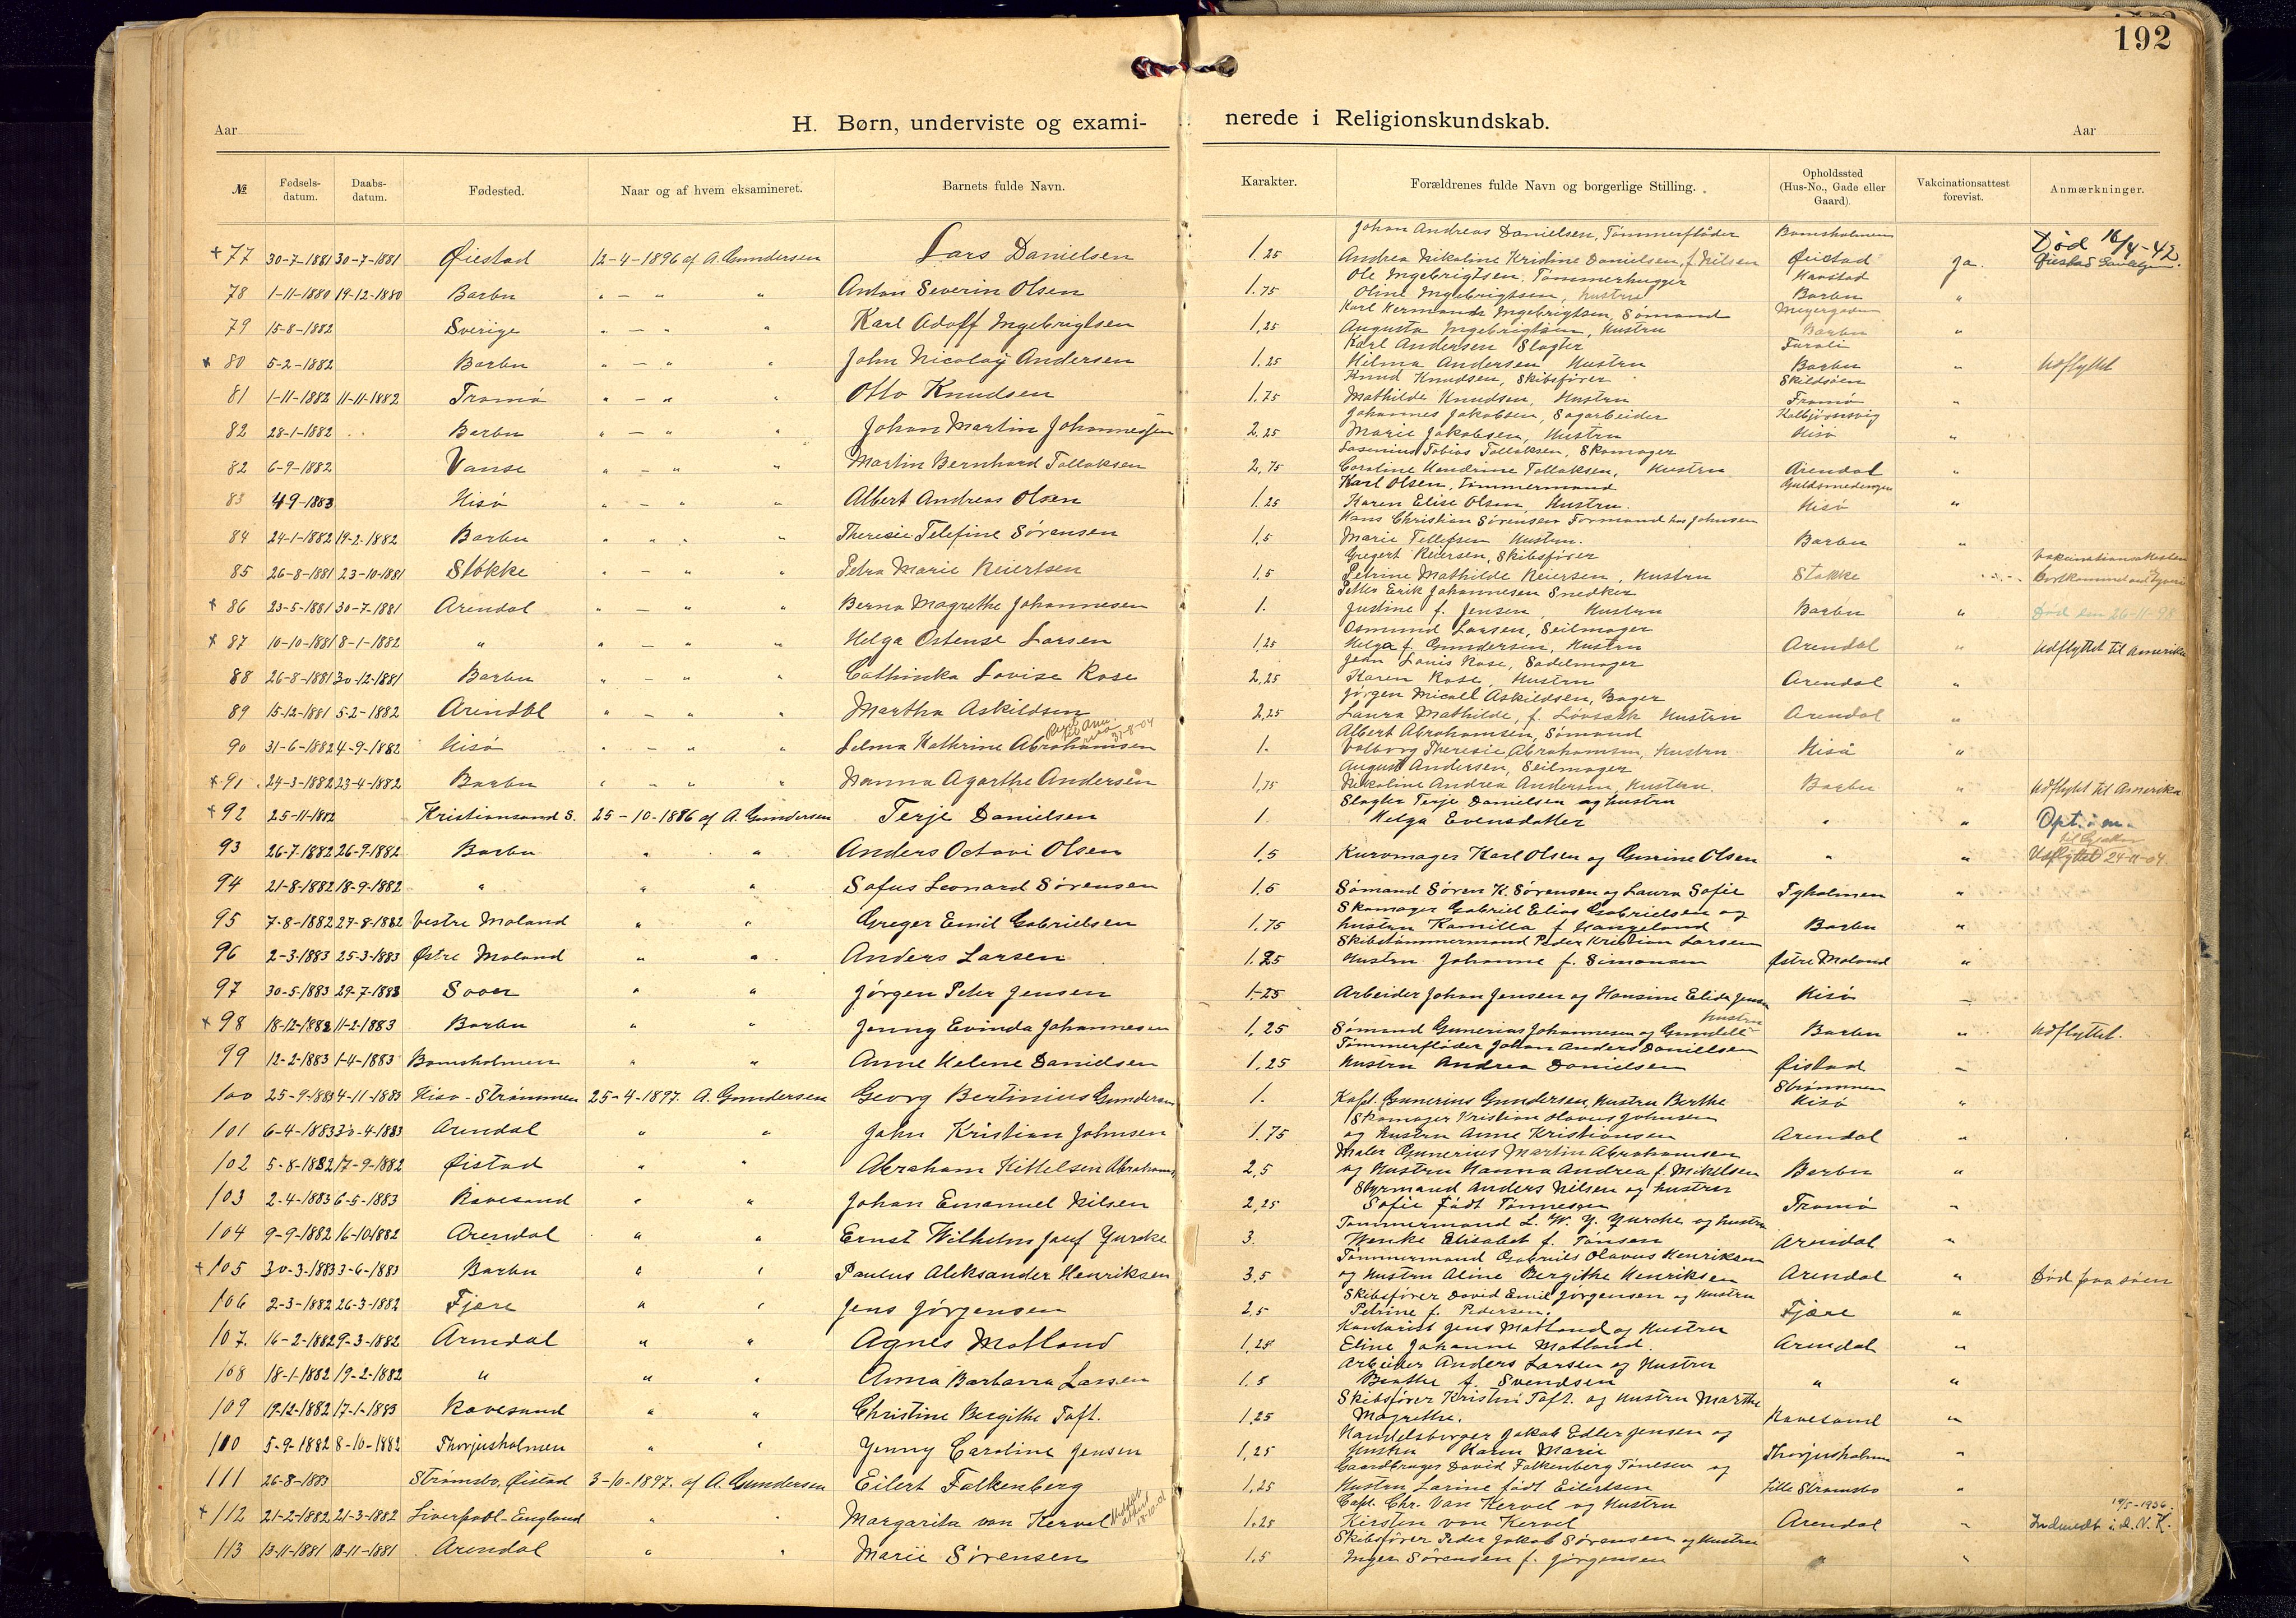 192
Aar
H. Børn, underviste og exami-
nerede i Religionskundskab.
Aar
№ Fødsels-datum. Daabs-datum. Fødested. Naar og af hvem eksamineret. Barnets fulde Navn. Karakter. Forældrenes fulde Navn og borgerlige Stilling. Opholdssted (Hus-No., Gade eller Gaard). Vakcinationsattest forevist. Anmærkninger.
Johan Andreas Danielsen, Tømmerfløder Bomsholmen
+ 77 30-7-1881 30-7-1881 Øiestad 12-4-1896 af A. Gundersen Lars Danielsen 1.25 Andrea Nikoline Kristine Danielsen, f. Nilsen Øiestad ja. Død 16/4-42.
Ole Ingebrigtsen. Tømmerhugger Havstad
78 1-11-1880 19-12-1880 Barbu " — " " Anton Severin Olsen 1.75 Oline Ingebrigtsen, Hustru Barbu "
Karl Hermands Ingebrigtsen, Sømand Meyergaden
79 15-8-1882 Sverige " — " " Karl Adolf Ingebrigtsen 1,25 Augusta Ingebrigtsen, Hustru Barbu "
Karl Andersen Slagter
+ 80 5-2-1882 Barbu " — " " John Nicolay Andersen 1.25 Hilma Andersen Hustru Barbu " Udflyttet
Knud Knudsen, Skibsfører Skildsøen
81 1-11-1882 11-11-1882 Tromø " — " " Otto Knudsen 1.75 Mathilde Knudsen, Hustru Tromø "
Johannes Jakobsen, Sagarbeider Kolbjørnsvig
82 28-1-1882 . . Barbu " — " " Johan Martin Johannessen 2,25 Marie Jakobsen, Hustru Hisø "
Tobias Tollaksen, Skomager
82 6-9-1882 Vanse " — " " Martin Bernhard Tollaksen 2,75 Caroline Hendrine Tollaksen, Hustru Arendal "
Karl Olsen, Tømmermand
83 4-9-1883 Hisø " — " " Albert Andreas Olsen 1.25 Karen Elise Olsen, Hustru. Hisø "
Hans Christian Sørensen Formand hos Johnsen
84 24-1-1882 19-2-1882 Barbu " " " " Theresie Telefine Sørensen 1,5 Marie Tellefsen Hustru. Barbu "
Gregert Reiersen, Skibsfører
85 26-8-1881 23-10-1881 Stokke " — " " Petra Marie Reiertsen 1,5 Petrine Mathilde Reiersen, Hustru Stokke
Petter Erik Johannesen Snedker
+ 86 23-5-1881 30-7-1881 Arendal " — " " Berna Magrethe Johannesen 1. Justine f. Jensen Hustru Barbu " Død den 26-11-98
Osmund Larsen, Seilmager
+ 87 10-10-1881 8-1-1882 " " — " " Helga Ostense Larsen 1,25 Helga f. Gundersen, Hustru Arendal " Udflyttet til Amerika
Jean Louis Rose, Sadelmager
88 26-8-1881 30-12-1881 Barbu " — " " Cathinka Lovise Rose 2,25 Karen Rose, Hustru Arendal "
Jørgen Micall Askildsen, Bager
89 15-12-1881 5-2-1882 Arendal " — " " Martha Askildsen 2,25 Laura Mathilde, f. Løvsæth Hustru Arendal "
31-8-04
Albert Abrahamsen, Sømand
90 31-6-1882 4-9-1882 Hisø " — " " Selma Kathrine Abrahamsen 1. Valborg Theresie Abrahamsen, Hustru Hisø "
August Andersen, Seilmager
+ 91 24-3-1882 23-4-1882 Barbu " — " " Hanna Agarthe Andersen 1,75 Nikoline Andrea Andersen, Hustru. Barbu " Udflyttet til Amerika
Slagter Terje Danielsen og hustru
+ 92 25-11-1882 Kristiansand S. 25-10-1886 af A. Gundersen Terje Danielsen 1 Helga Evensdatter " " Opt. i m.
93 26-7-1882 26-9-1882 Barbu " " Anders Octavi Olsen 1,5 Kurvmager Karl Olsen og Gurine Olsen " " Udflyttet 24-11-04
94 21-8-1882 18-9-1882 " " " Sofus Leonard Sørensen 1.6 Sømand Søren K. Sørensen og Laura Sofie Tyholmen "
Skomager Gabriel Elias Gabrielsen og
95 7-8-1882 27-8-1882 Vestre Moland " " Greger Emil Gabrielsen 1.75 hustru Kamilla f Haugeland Barbu "
Skibstømmermand Peder Kristian Larsen
96 2-3-1883 25-3-1883 Østre Moland " " Anders Larsen 1.25 Hustru Johanne f. Simonsen Østre Moland "
97 30-5-1883 29-7-1883 " " Jørgen Peter Jensen 1-25 Arbeider Johan Jensen og Hansine Elida Jensen Hisø "
Hustru
+ 98 18-12-1882 11-2-1883 Barbu " " Jenny Evinda Johannesen 1,25 Sømand Gunerius Johannesen og Barbu " Udflyttet.
Tømmerfløder Johan Anders Danielsen
99 12-2-1883 1-4-1883 Bomsholmen " " Anne Helene Danielsen 1,25 Hustru Andrea Danielsen Øistad "
Strømmen
100 25-9-1883 4-11-1883 Hisø-Strømmen 25-4-1897. A. Gundersen Georg Bertinius Gundersen 1. Kapt. Gunerius Gundersen, Hustru Berthe Hisø "
Skomager Kristian Olavus Johnsen
101 6-4-1883 30-4-1883 Arendal " " John Kristian Johnsen 1.75 og hustru Anne Kristiansen Arendal "
Maler Gunerius Martin Abrahamsen
102 5-8-1882 17-9-1882 Øistad " " Abraham Kittelsen Abrahams. 2,5 og Hustru Hanna Andrea f. Mikelsen Barbu "
Styrmand Anders Nilsen og hustru
103 2-4-1883 6-5-1883 Ravesund " " Johan Emanuel Nilsen 2,25 Sofie Født Tønnesen Tromø "
Tømmermand L. W. J. Jurcke og hustru
104 9-9-1882 16-10-1882 Arendal " " Ernst Wilhelm Josef Jurcke 3. Wenke Elisabet f. Tønsen Arendal "
Tømmermand Gabriels Olavus Henriksen
+ 105 30-3-1883 3-6-1883 Barbu " " Paulus Aleksander Henriksen 3,5 og Hustru Aline Bergithe Henriksen Arendal " Død paa søen
Skibsfører David Emil Jørgensen og Hustru
106 2-3-1882 26-3-1882 Fjære " " Jens Jørgensen 2,5 Petrine f. Pedersen. Fjære "
Kontorist Jens Matland og Hustru
107. 16-2-1882 9-3-1882 Arendal " " Agnes Motland 1,25 Eline Johanne Motland. Arendal "
Arbeider Anders Larsen og Hustru
108 18-1-1882 19-2-1882 " " " Anna Barbarra Larsen 1.5 Berthe f. Svendsen " "
Skibsfører Kristen Toft. og Hustru Marthe
109 19-12-1882 17-1-1883 Ravesund " " Christine Bergithe Toft. 1,25 Magrethe. Ravesund "
Handelsborger Jakob Edler Jensen og
110 5-9-1882 8-10-1882 Thorjusholmen " " Jenny Caroline Jensen 1,25 Hustru Karen Marie Thorjusholmen "
Gaardbruger David Falkenberg Tønesen og
111 26-8-1883 Strømsbo, Øistad 3-10-1897. af A. Gundersen Eilert Falkenberg 1,25 Hustru Larine født Eilertsen Lille Strømsbo "
Capt. Chr. Van Kervel og Hustru 19/5-1936.
+ 112 21-2-1882 21-3-1882 Liverpool-England " " Margarita van Kervel 1.25 Kirsten van Kervel Arendal " Indmeldt i d. N. K.
Skibsfører Peder Jakob Sørensen og Hustru
113 13-11-1881 18-11-1881 Arendal " " Marie Sørensen 1.5 Inger Sørensen f. Jørgensen " "